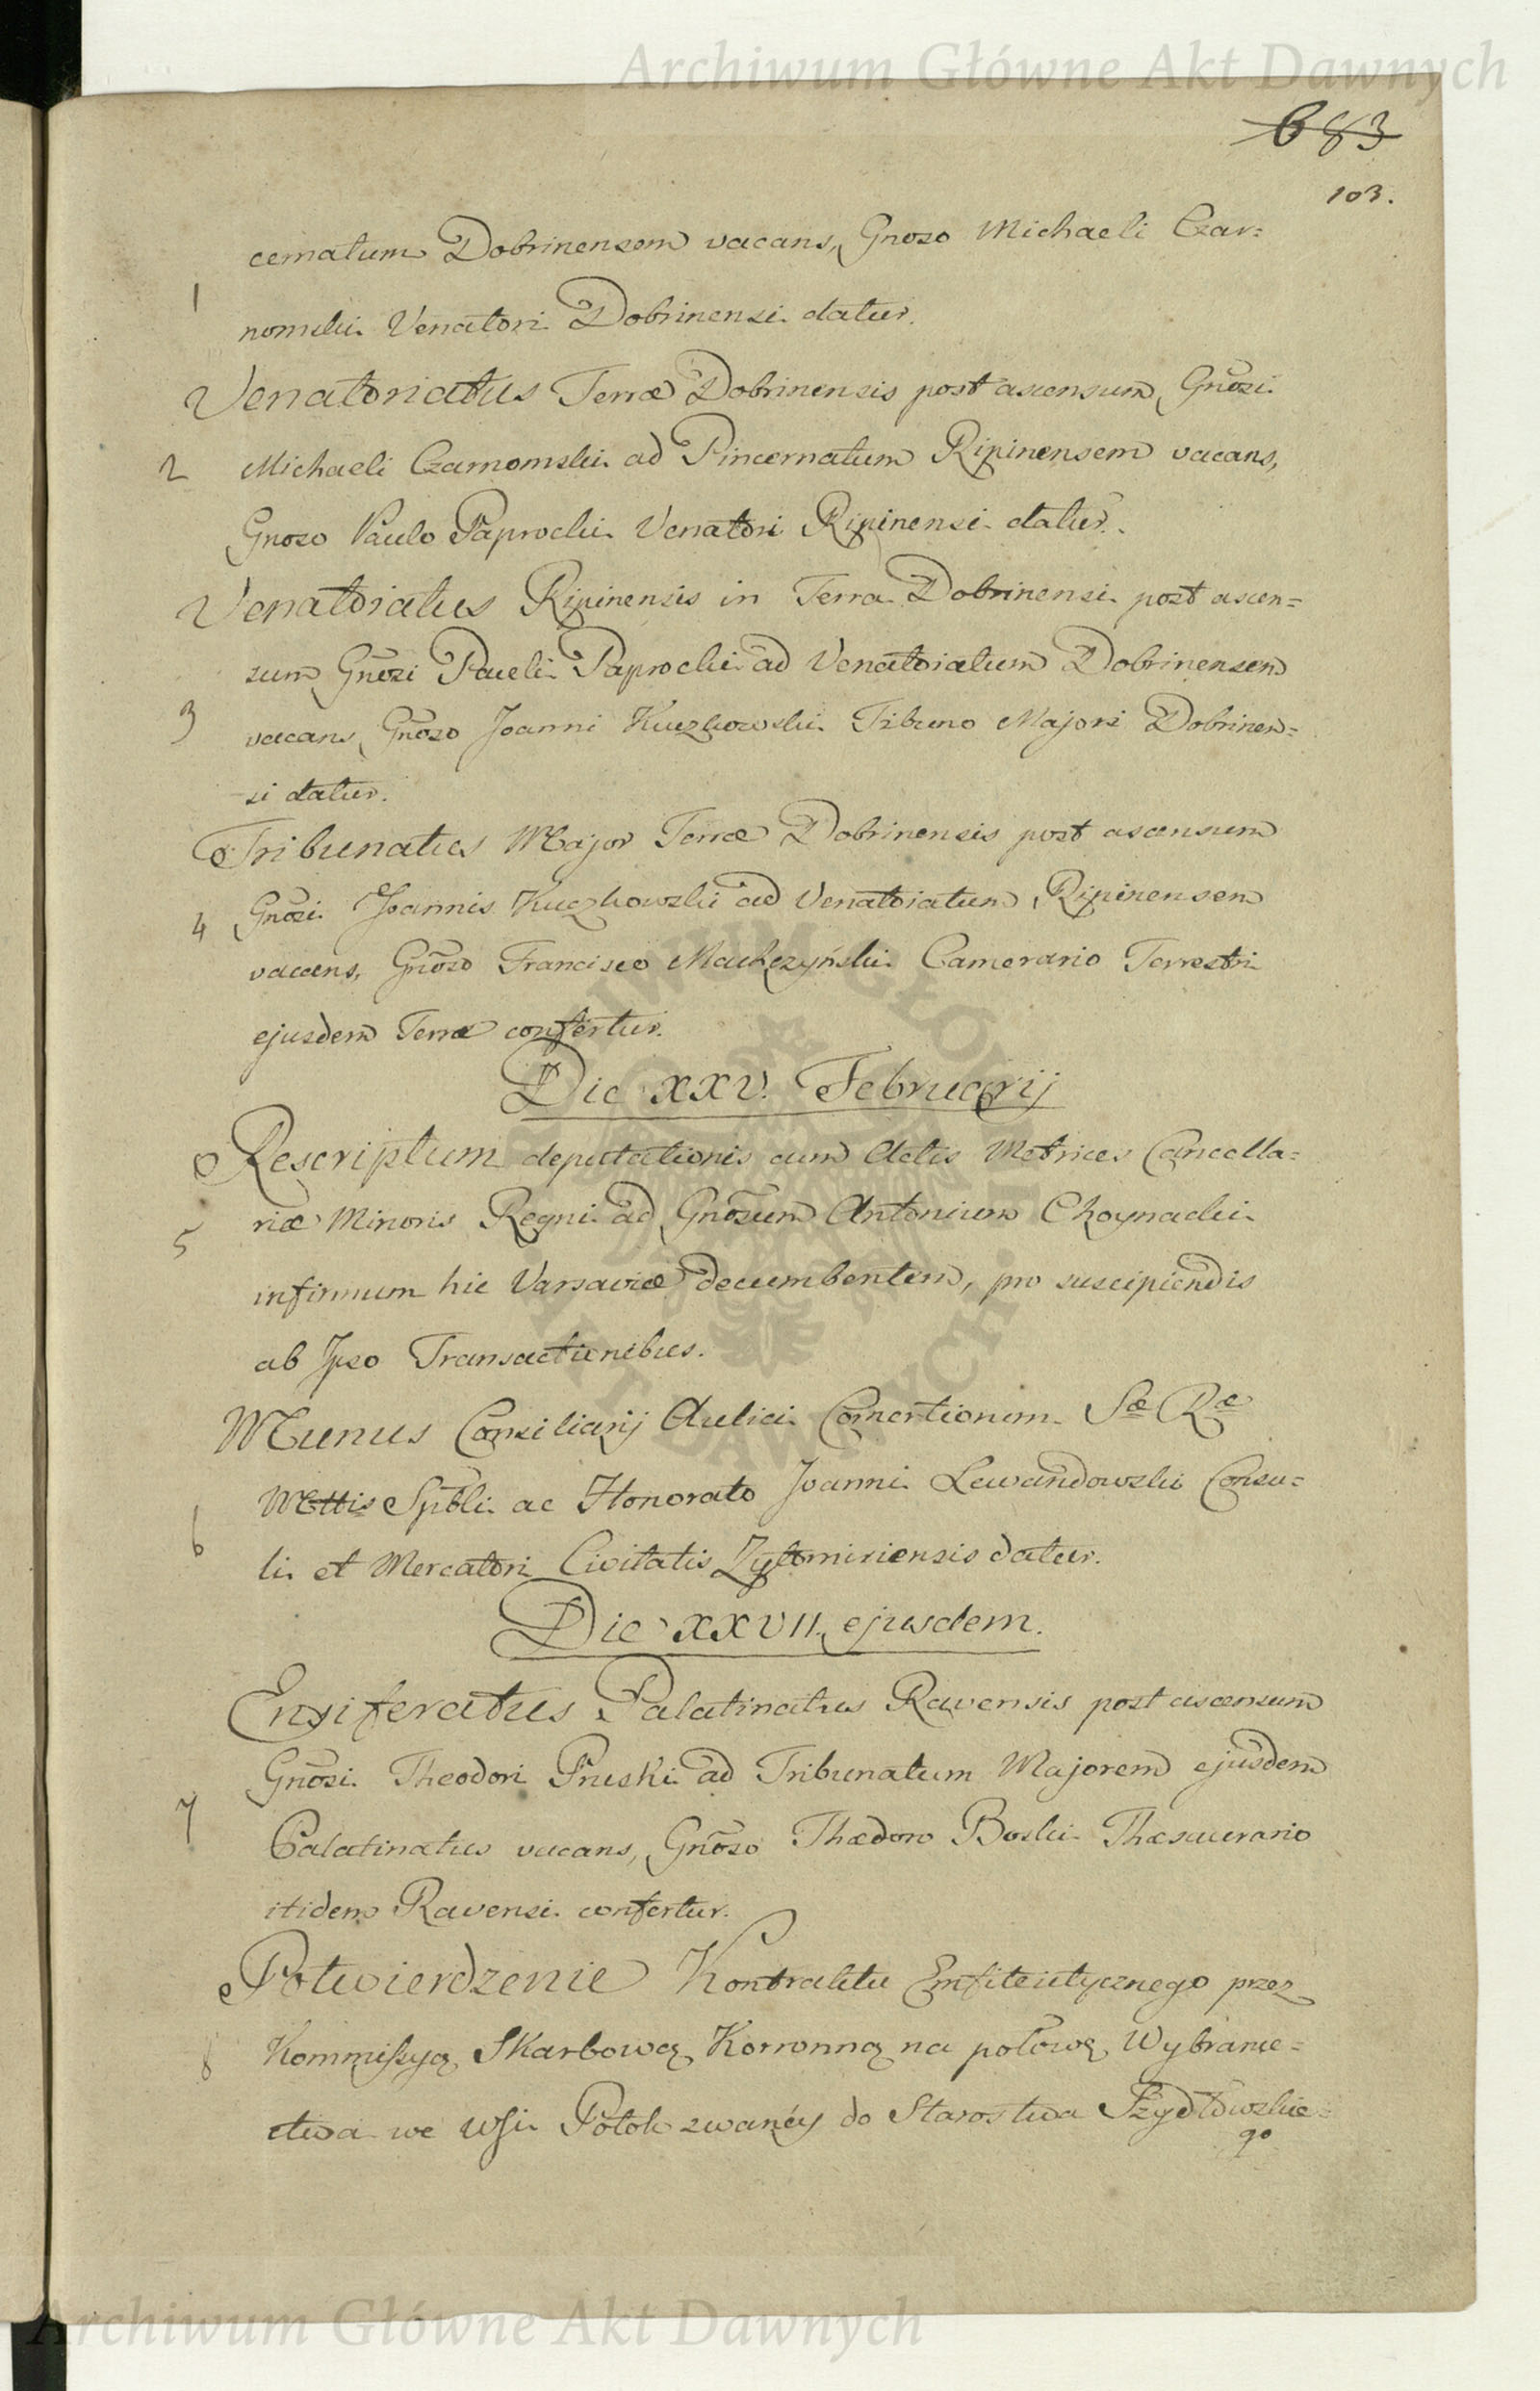 Archiwum Główne Akt Dawnych
683
103.
cernatum Dobrinensem vacans, Gnoso Michaeli Czar=
1 nomski Venatori Dobrinensi datur.
Venatoriatus Terræ Dobrinensis post ascensum Gnosi
2 Michaeli Czarnomski ad Pincernatum Ripinensem vacans,
Gnoso Paulo Paprocki Venatori Ripinensi datur.
Venatoriatus Ripinensis in Terra Dobrinensi post ascen=
sum Gnosi Pauli Paprocki ad Venatoriatum Dobrinensem
3 vacans, Gnoso Joanni Kuczkowski Tribuno Majori Dobrinen=
si datur.
Tribunatus Major Terræ Dobrinensis post ascensum
4 Gnosi Joannis Kuczkowski ad Venatoriatum Ripinensem
vacans, Gnoso Francisco Camerario Terrestri
ejusdem Terræ confertur.
Die XXV. Februarij
Rescriptum deputationis cum Actis Metrices Cancella=
5 riæ Minoris Regni ad Gnosum Antonium Choynacki
infirmum hic Varsaviæ decumbentem, pro suscipiendis
ab Ipso Transactionibus.
Munus Consiliarij Aulici Comertionum Sæ Ræ
Mttis Spbli ac Honorato Joanni Lewandowski Consu=
6 li et Mercatori Civitatis Zytomiriensis datur.
Die XXVII. ejusdem.
Ensiferatus Palatinatus Ravensis post ascensum
Gnosi Theodori Pruski ad Tribunatum Majorem ejusdem
7 Palatinatus vacans, Gnoso Thædoro Boski Thesaurario
itidem Ravensi confertur.
Potwierdzenie Kontraktu Emfiteutycznego przez
8 Kommissyą Skarbową Korronną na połowę Wybranie=
ctwa we Wsi Potok zwanéy do Starostwa Szydłowskie=
go
Archiwum Główne Akt Dawnych